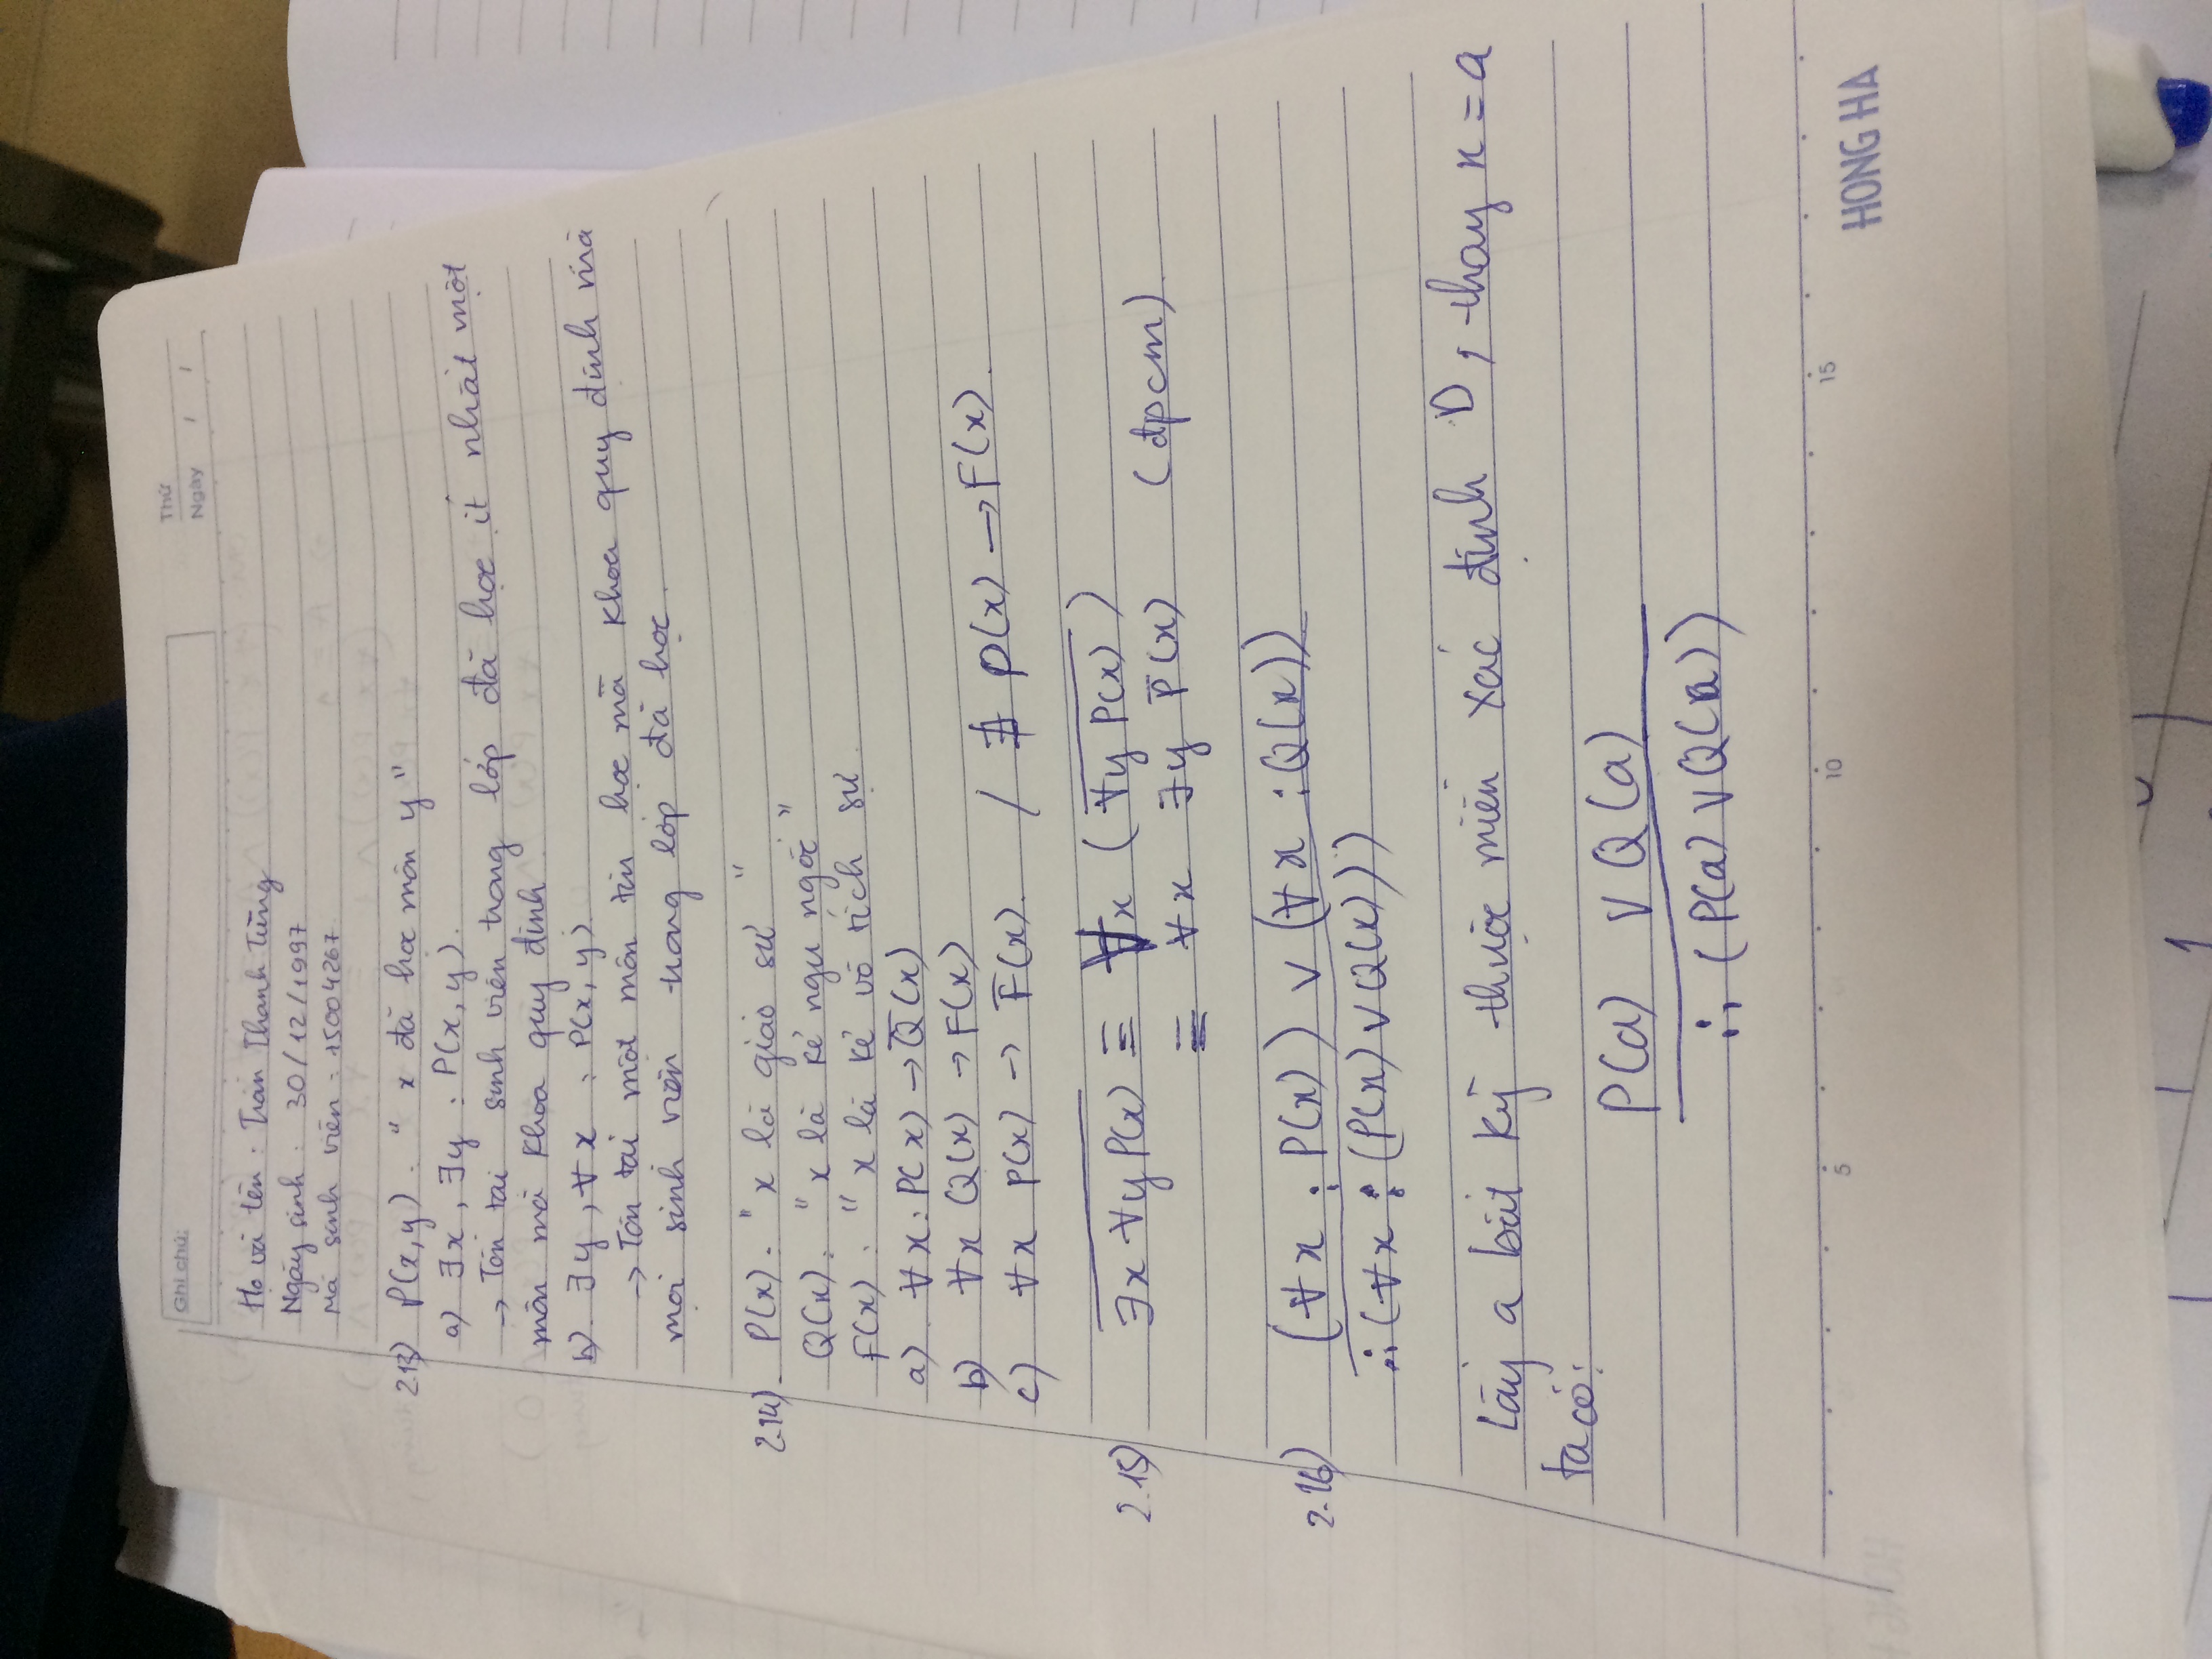 Ghi chú:
Thứ
Ngày / /
Họ và tên : Trần Thanh Tùng
Ngày sinh : 30/12/1997
Mã sinh viên : 15004267
2.13) P(x,y) : " x đã học môn y "
a) ∃x , ∃y : P(x,y).
→ Tồn tại sinh viên trong lớp đã học ít nhất một
môn mà khoa quy định
b) ∃y , ∀x : P(x,y)
→ Tồn tại một môn tin học mà khoa quy định mà
mọi sinh viên trong lớp đã học.
2.14) P(x) : " x là giáo sư "
Q(x) : " x là kẻ ngu ngốc "
F(x) : " x là kẻ vô tích sự
a) ∀x : P(x) → Q̅(x)
b) ∀x Q(x) → F(x)
c) ∀x P(x) → F̅(x) / ∄ P(x) → F(x)
2.15) \overline{∃x ∀y P(x)} ≡ ∀x ( \overline{∀y P(x)} )
≡ ∀x ∃y P̅(x) (đpcm)
2.16) (∀x : P(x)) ∨ (∀x : Q(x))
∴ (∀x : (P(x) ∨ Q(x)))
Lấy a bất kỳ thuộc miền xác định D, thay x = a
ta có:
P(a) ∨ Q(a)
∴ (P(a) ∨ Q(a))
5 10 15
HONG HA